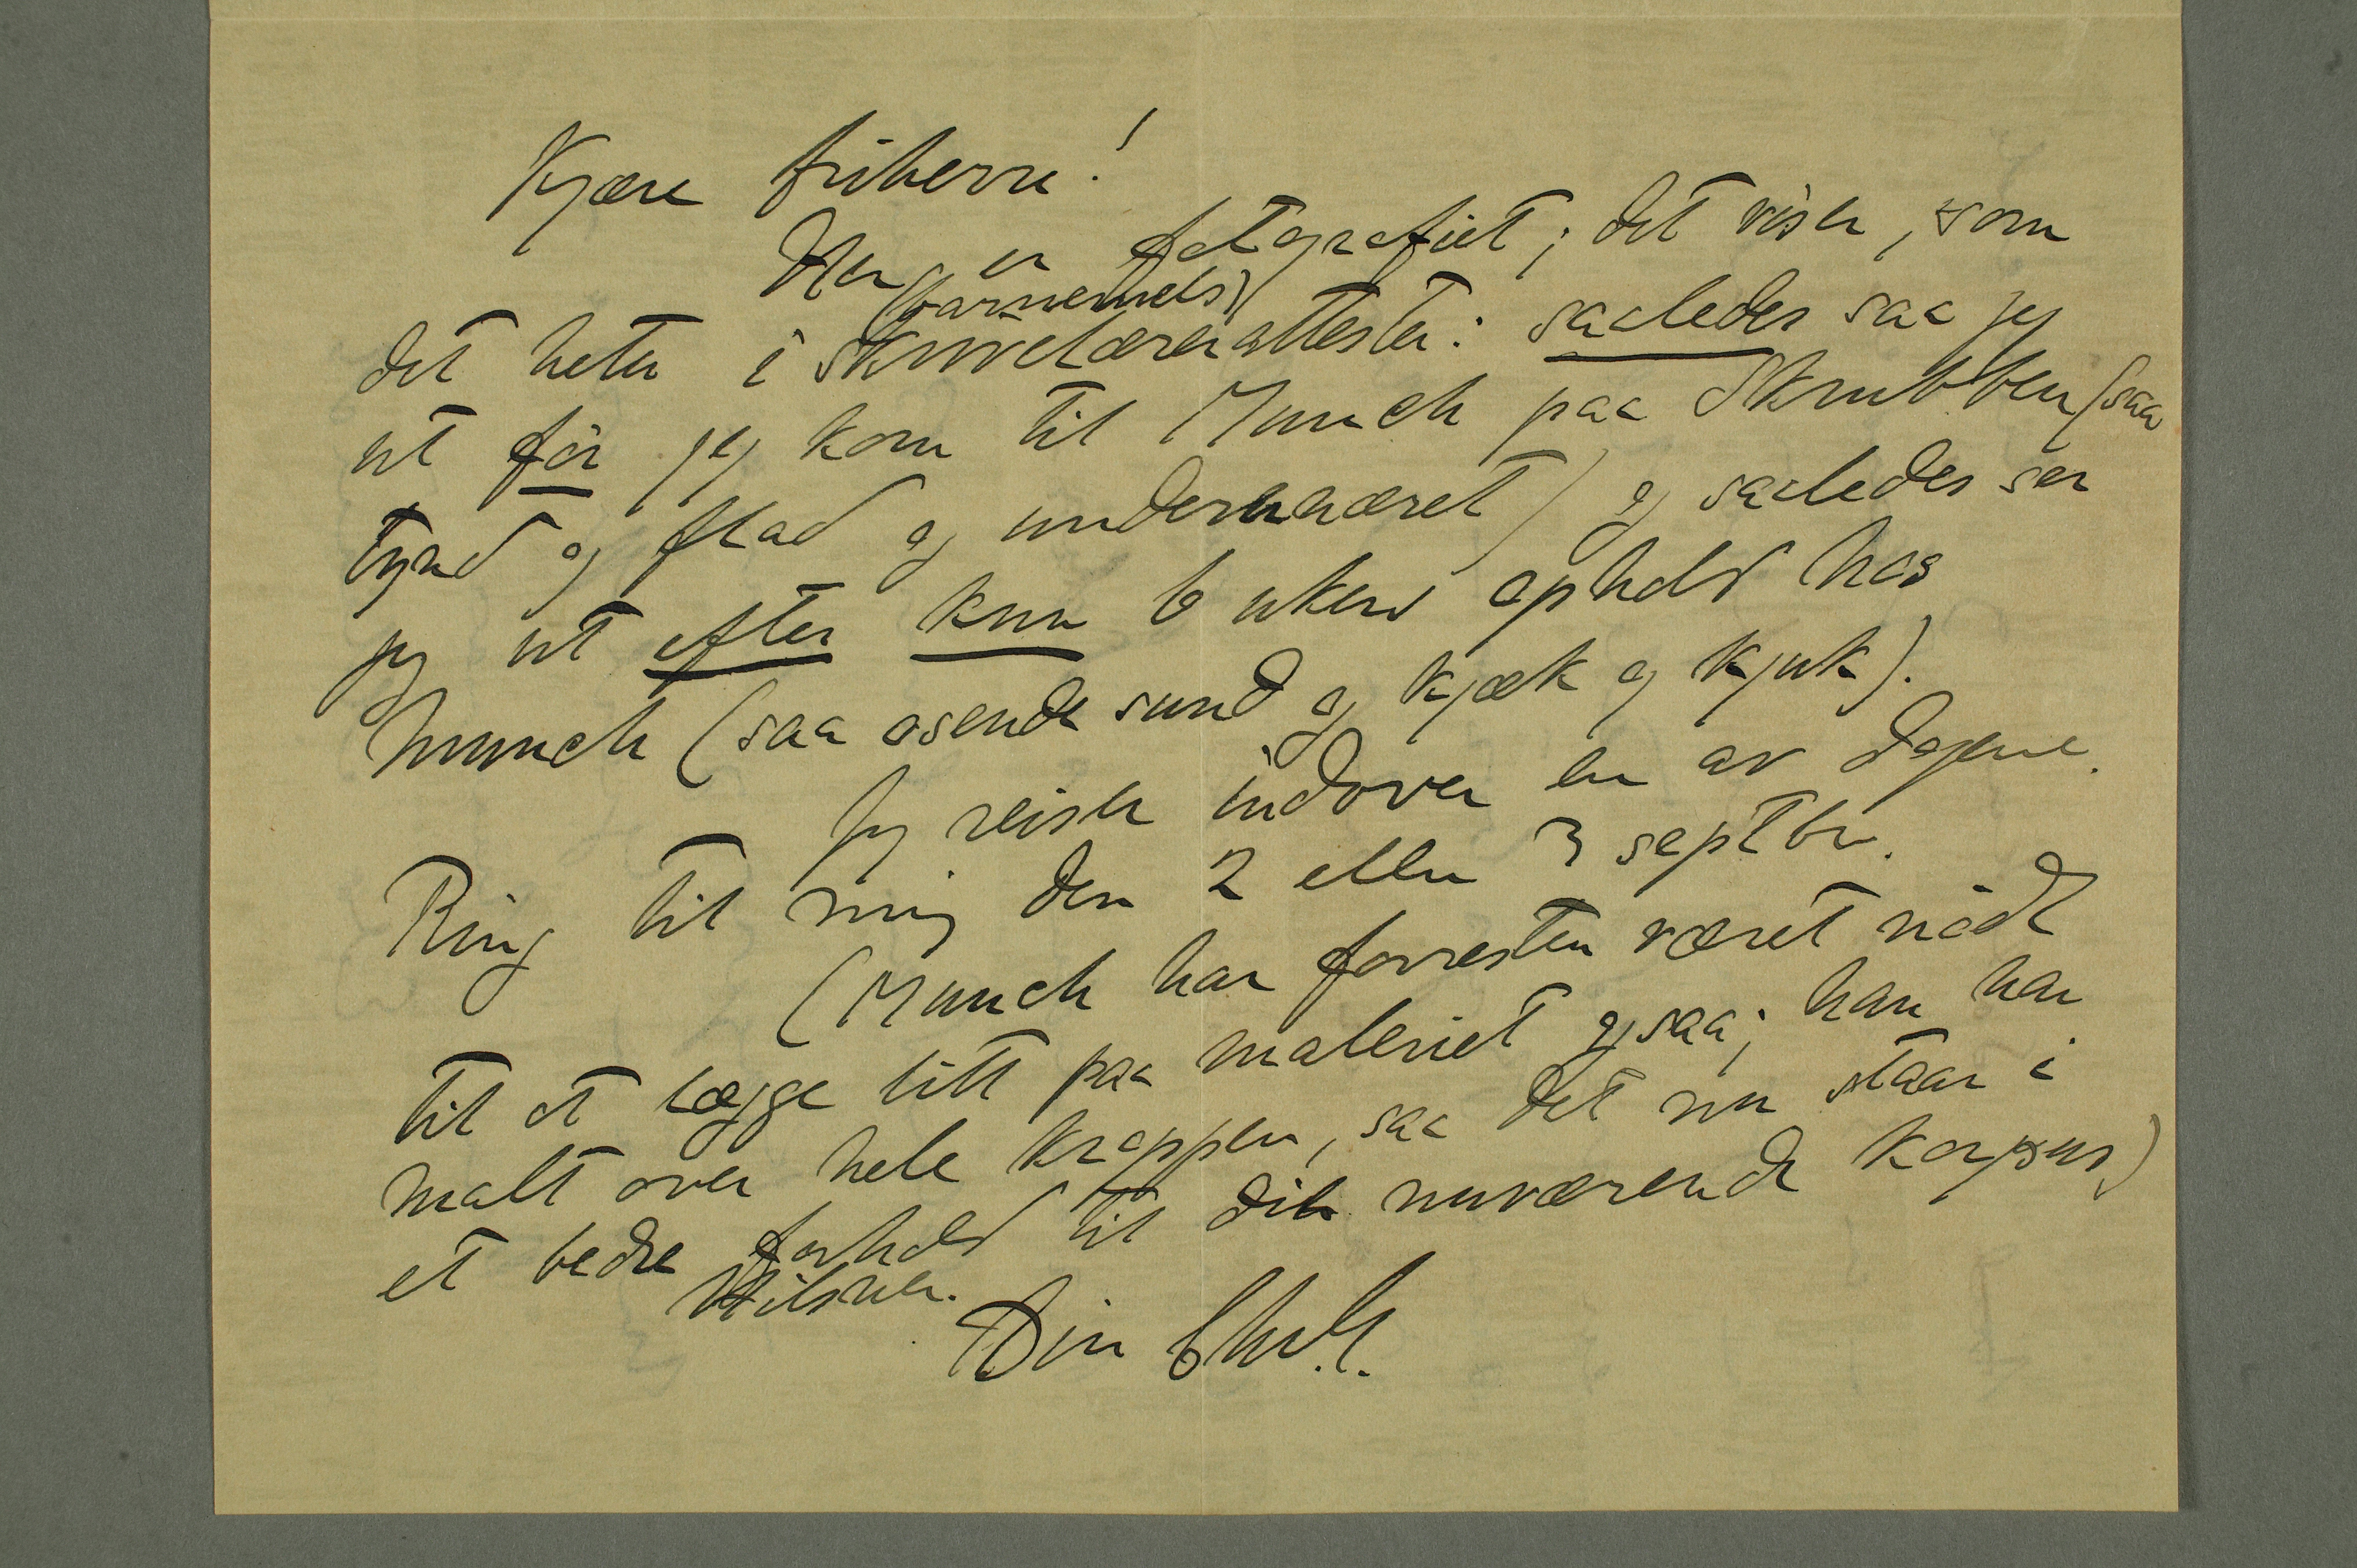 Kjære friherre!
Her er fotografiet; det viser, som
(barnemels)
det heter i skrivelærerattester: saaledes saa jeg
ut før jeg kom til Munch paa Skrubben (saa
tynd og flad og underernæret) og saaledes ser
jeg ut efter kun 6 ukers ophold hos
Munch (saa osende sund og kjæk og kjuk).
Jeg reiser indover en av dagene.
Ring til mig den 2 eller 3 septbr.
(Munch har forresten været nødt
til at lægge litt paa maleriet ogsaa; han har
malt over hele kroppen, saa det nu staar i
et bedre forhold til dit nuværende korpus)
Hilsner.
Din Chr. G.